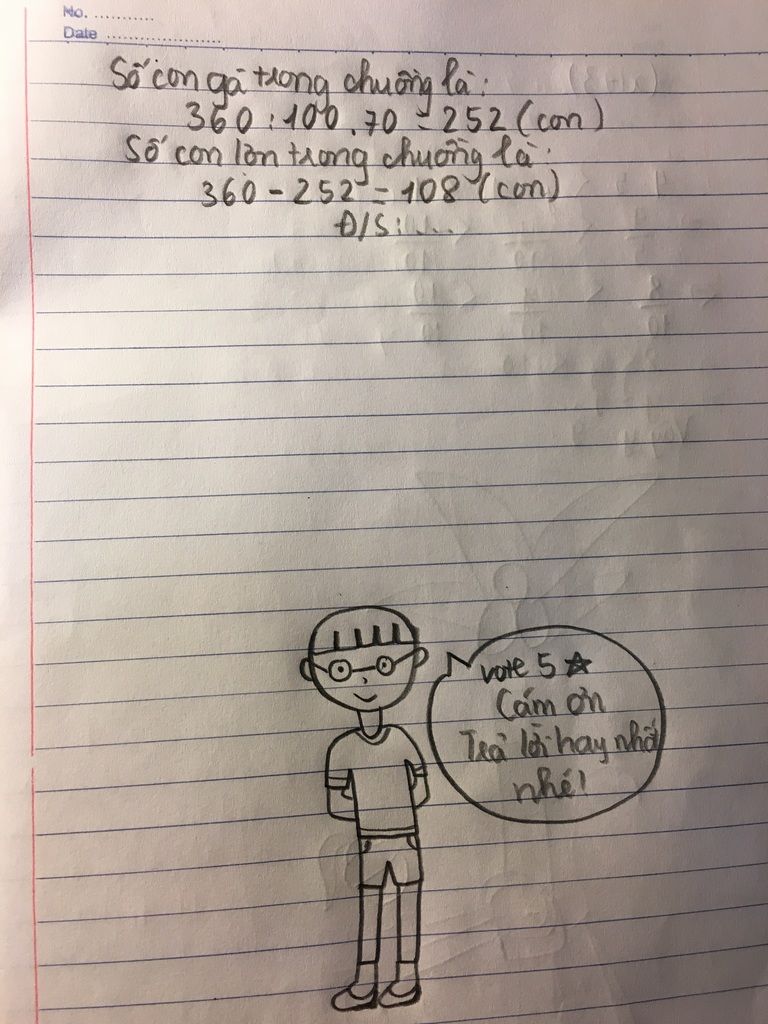 No. ............
Date ......................
Số con gà trong chuồng là:
360 : 100 . 70 = 252 (con)
Số con lợn trong chuồng là:
360 - 252 = 108 (con)
Đ/S: ....
vote 5 ☆
Cám ơn
Trả lời hay nhất
nhé!